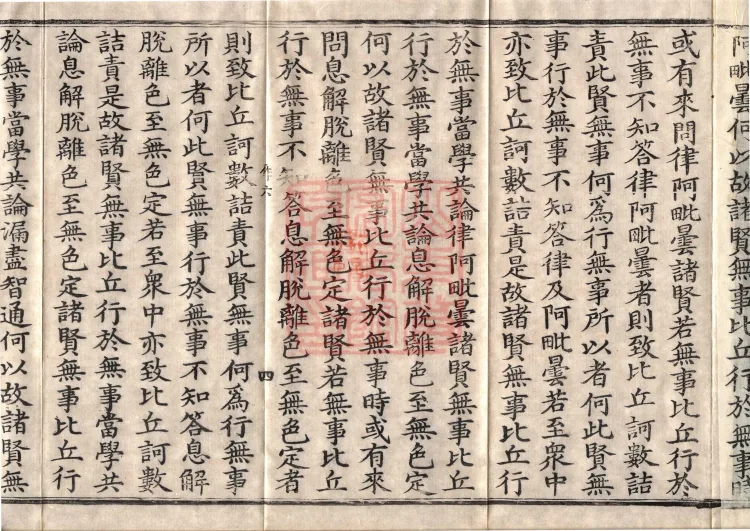 阿毗曇何以故諸賢無事比丘行於無事時
或有來問律阿毗曇諸賢若無事比丘行於
無事不知答律阿毗曇者則致比丘訶數詰
責此賢無事何為行無事所以者何此賢無
事行於無事不知答律及阿毗曇若至眾中
亦致比丘訶數詰責是故諸賢無事比丘行
於無事當學共論律阿毗曇諸賢無事比丘
行於無事當學共論息解脫離色至無色定
何以故諸賢無事比丘行於無事時或有來
問息解脫離色至無色定諸賢若無事比丘
行於無事不知答息解脫離色至無色定者
作六
四
則致比丘訶數詰責此賢無事何為行無事
所以者何此賢無事行於無事不知答息解
脫離色至無色定若至眾中亦致比丘訶數
詰責是故諸賢無事比丘行於無事當學共
論息解脫離色至無色定諸賢無事比丘行
於無事當學共論漏盡智通何以故諸賢無